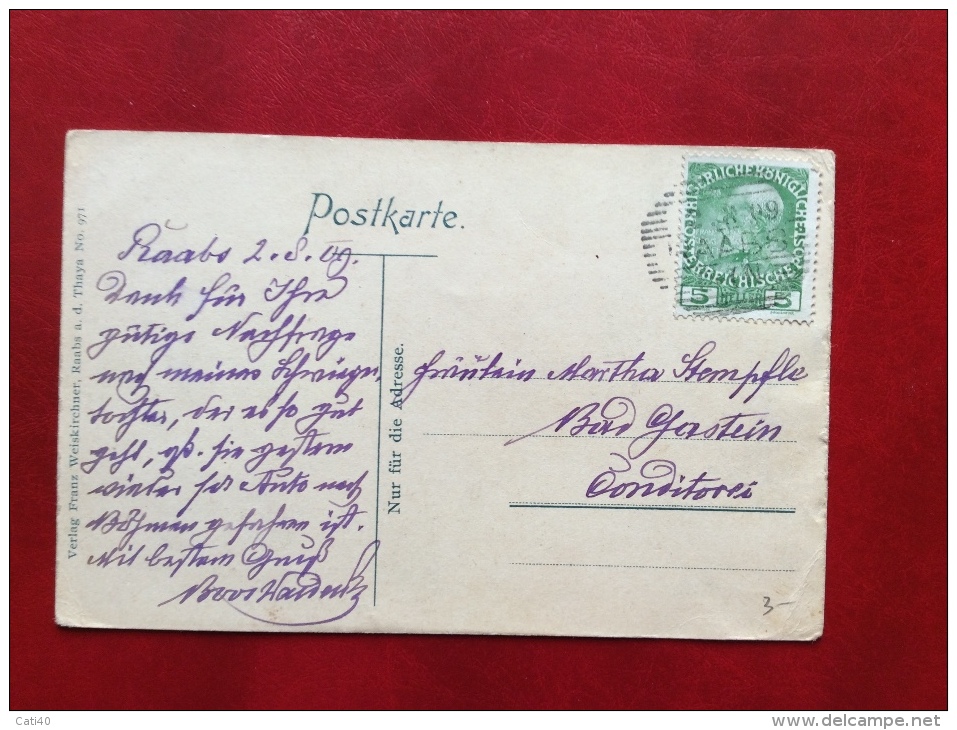 Postkarte.
Raabs 2.8.09.
Dank für Ihre
gütige Nachfrage
nach meiner Schwieger-
tochter, der es so gut
geht, daß sie gestern
wieder per Auto nach
Böhmen gefahren ist.
Mit bestem Gruß
Verlag Franz Weiskirchner, Raabs a. d. Thaya No. 971
Nur für die Adresse.
Fräulein Martha Stempfle
Bad Gastein
Conditorei
KAISERLICHE KÖNIGLICHE
ÖSTERREICHISCHE
09
RAABS
5 HELLER 5
3-
Cati40
delcampe.net